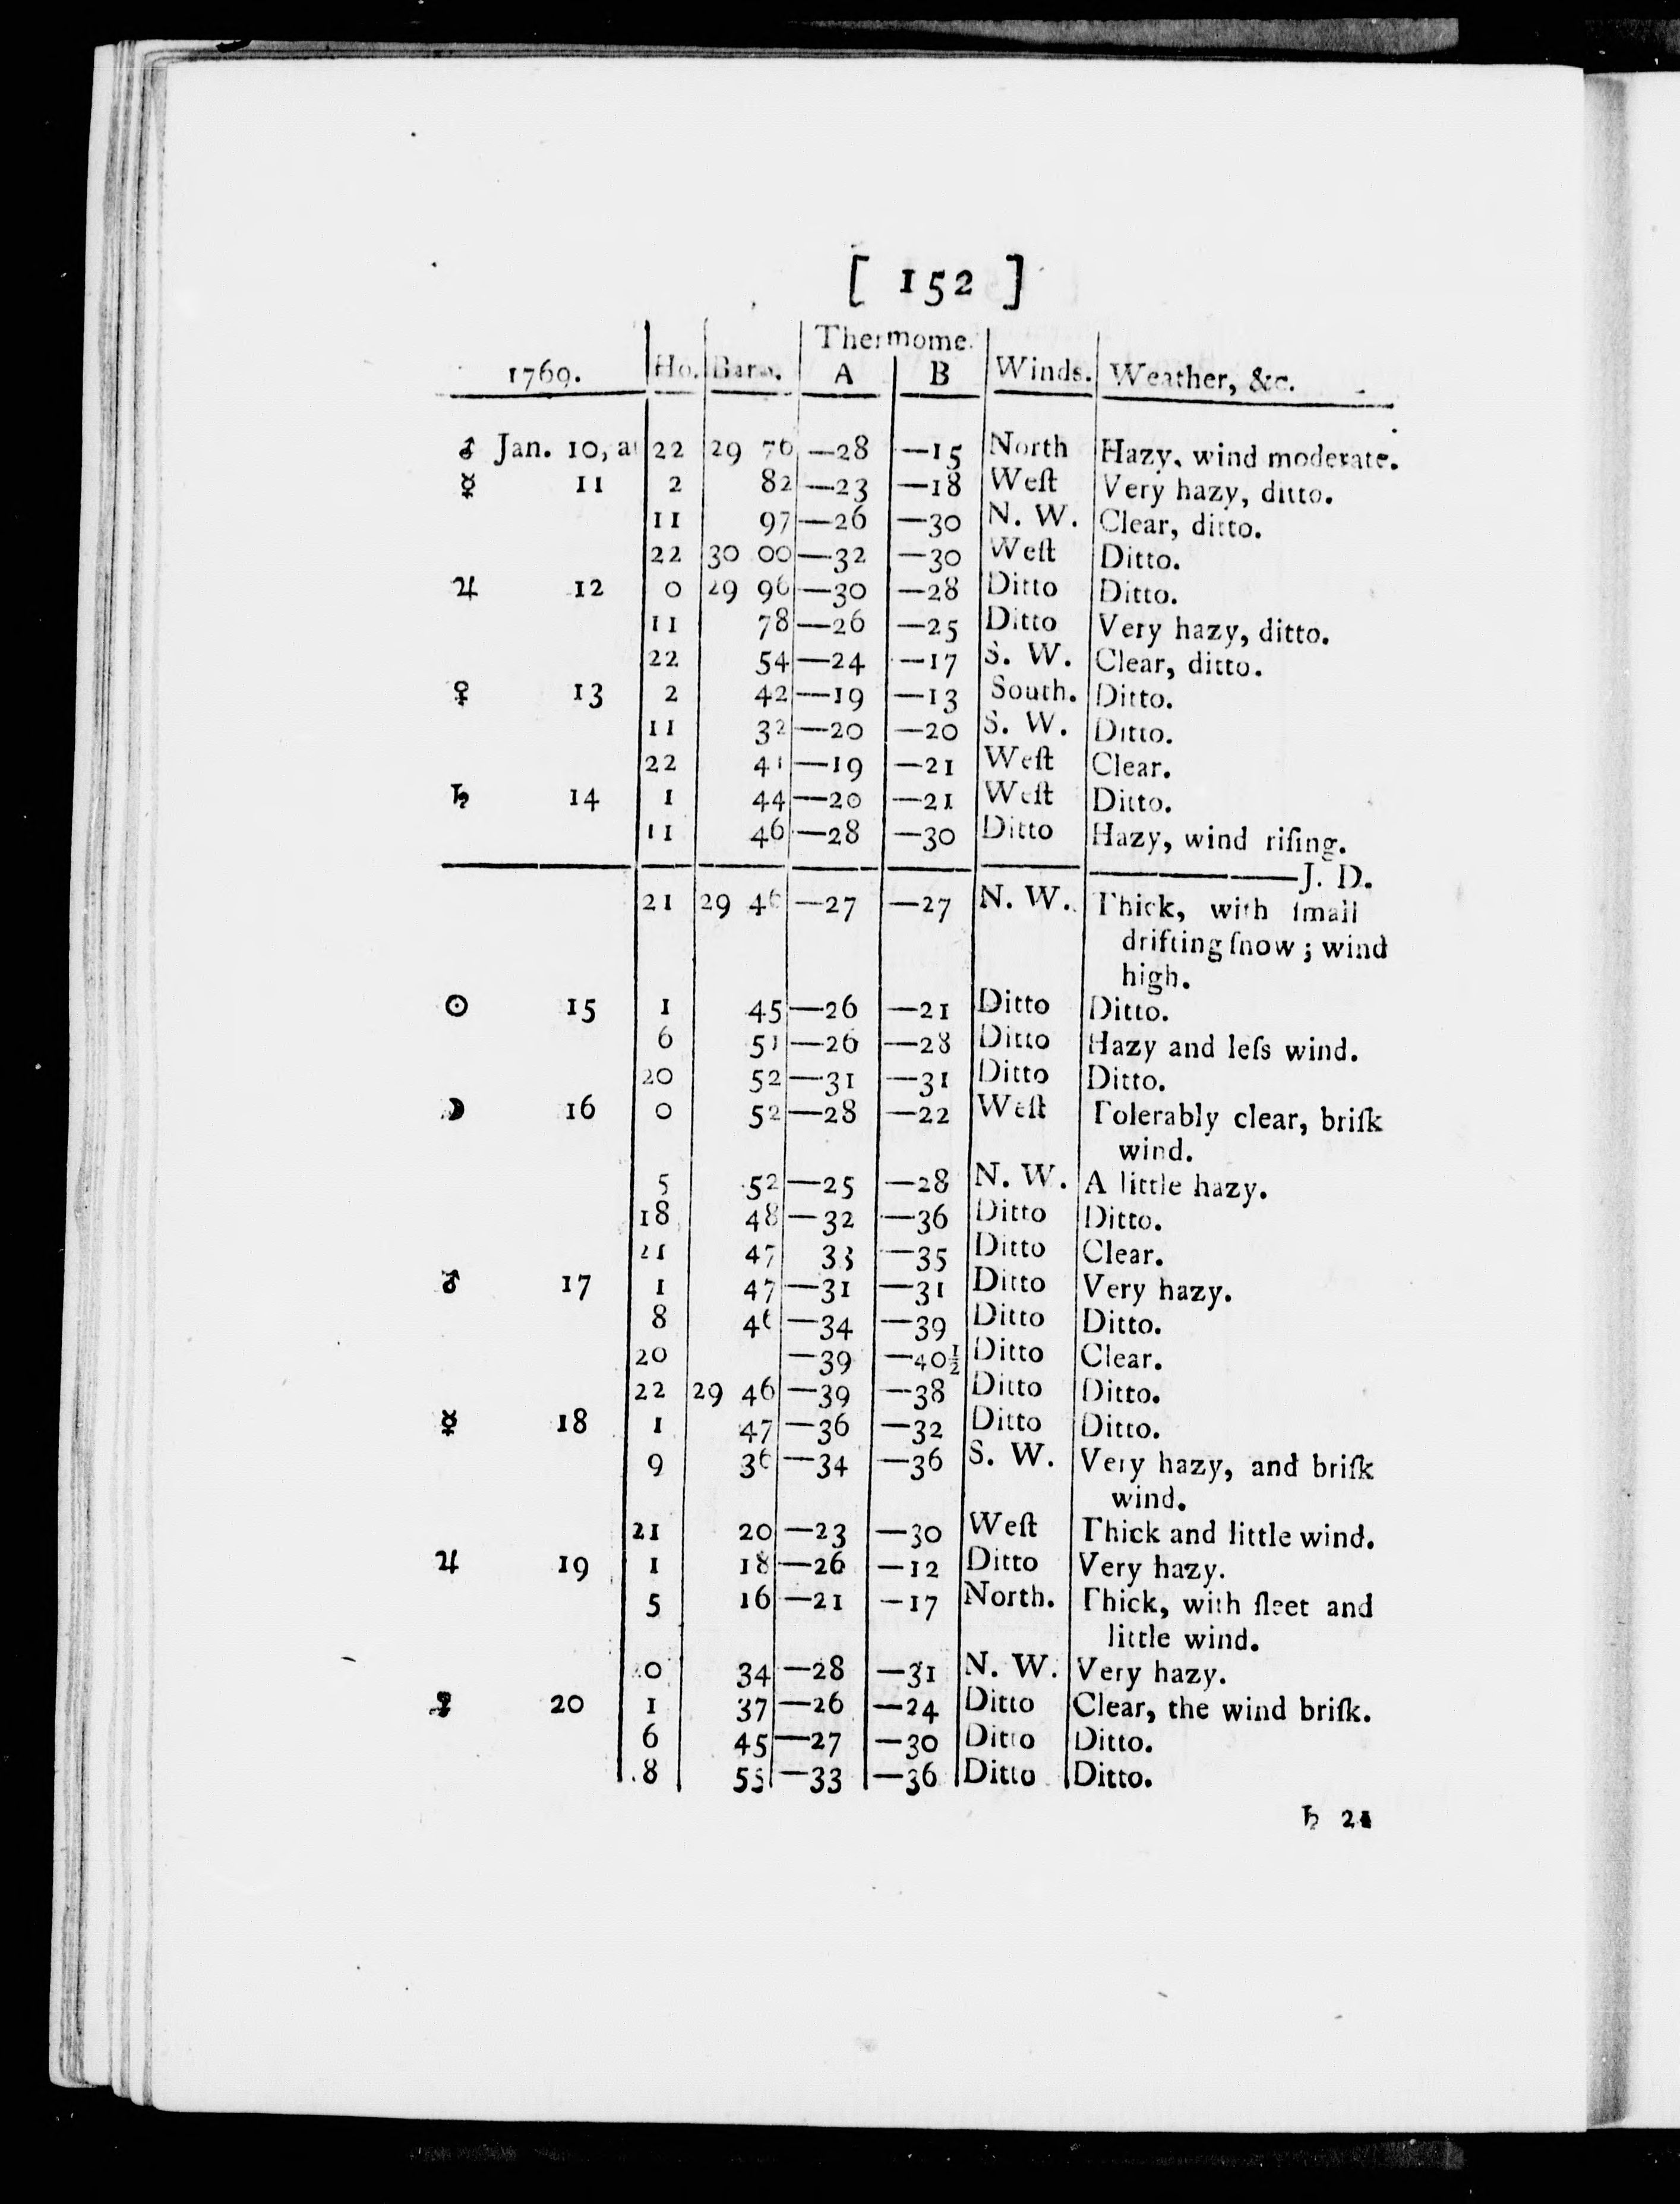 [ 152 ]
Thermome.
1769. Ho. Baro. A B Winds. Weather, &c.
♂ Jan. 10, at 22 29 76 —28 —15 North Hazy, wind moderate.
☿ 11 2 82 —23 —18 Weſt Very hazy, ditto.
11 97 —26 —30 N. W. Clear, ditto.
22 30 00 —32 —30 Weſt Ditto.
♃ 12 0 29 96 —30 —28 Ditto Ditto.
11 78 —26 —25 Ditto Very hazy, ditto.
22 54 —24 —17 S. W. Clear, ditto.
♀ 13 2 42 —19 —13 South. Ditto.
11 32 —20 —20 S. W. Ditto.
22 41 —19 —21 Weſt Clear.
♄ 14 1 44 —20 —21 Weſt Ditto.
11 46 —28 —30 Ditto Hazy, wind riſing.
J. D.
21 29 46 —27 —27 N. W. Thick, with ſmall
drifting ſnow; wind
high.
☉ 15 1 45 —26 —21 Ditto Ditto.
6 51 —26 —28 Ditto Hazy and leſs wind.
20 52 —31 —31 Ditto Ditto.
☽ 16 0 52 —28 —22 Weſt Tolerably clear, briſk
wind.
5 52 —25 —28 N. W. A little hazy.
18 48 —32 —36 Ditto Ditto.
21 47 33 —35 Ditto Clear.
♂ 17 1 47 —31 —31 Ditto Very hazy.
8 46 —34 —39 Ditto Ditto.
20 —39 —40½ Ditto Clear.
22 29 46 —39 —38 Ditto Ditto.
☿ 18 1 47 —36 —32 Ditto Ditto.
9 36 —34 —36 S. W. Very hazy, and briſk
wind.
21 20 —23 —30 Weſt Thick and little wind.
♃ 19 1 18 —26 —12 Ditto Very hazy.
5 16 —21 —17 North. Thick, with ſleet and
little wind.
34 —28 —31 N. W. Very hazy.
♀ 20 1 37 —26 —24 Ditto Clear, the wind briſk.
6 45 —27 —30 Ditto Ditto.
8 55 —33 —36 Ditto Ditto.
♄ 21